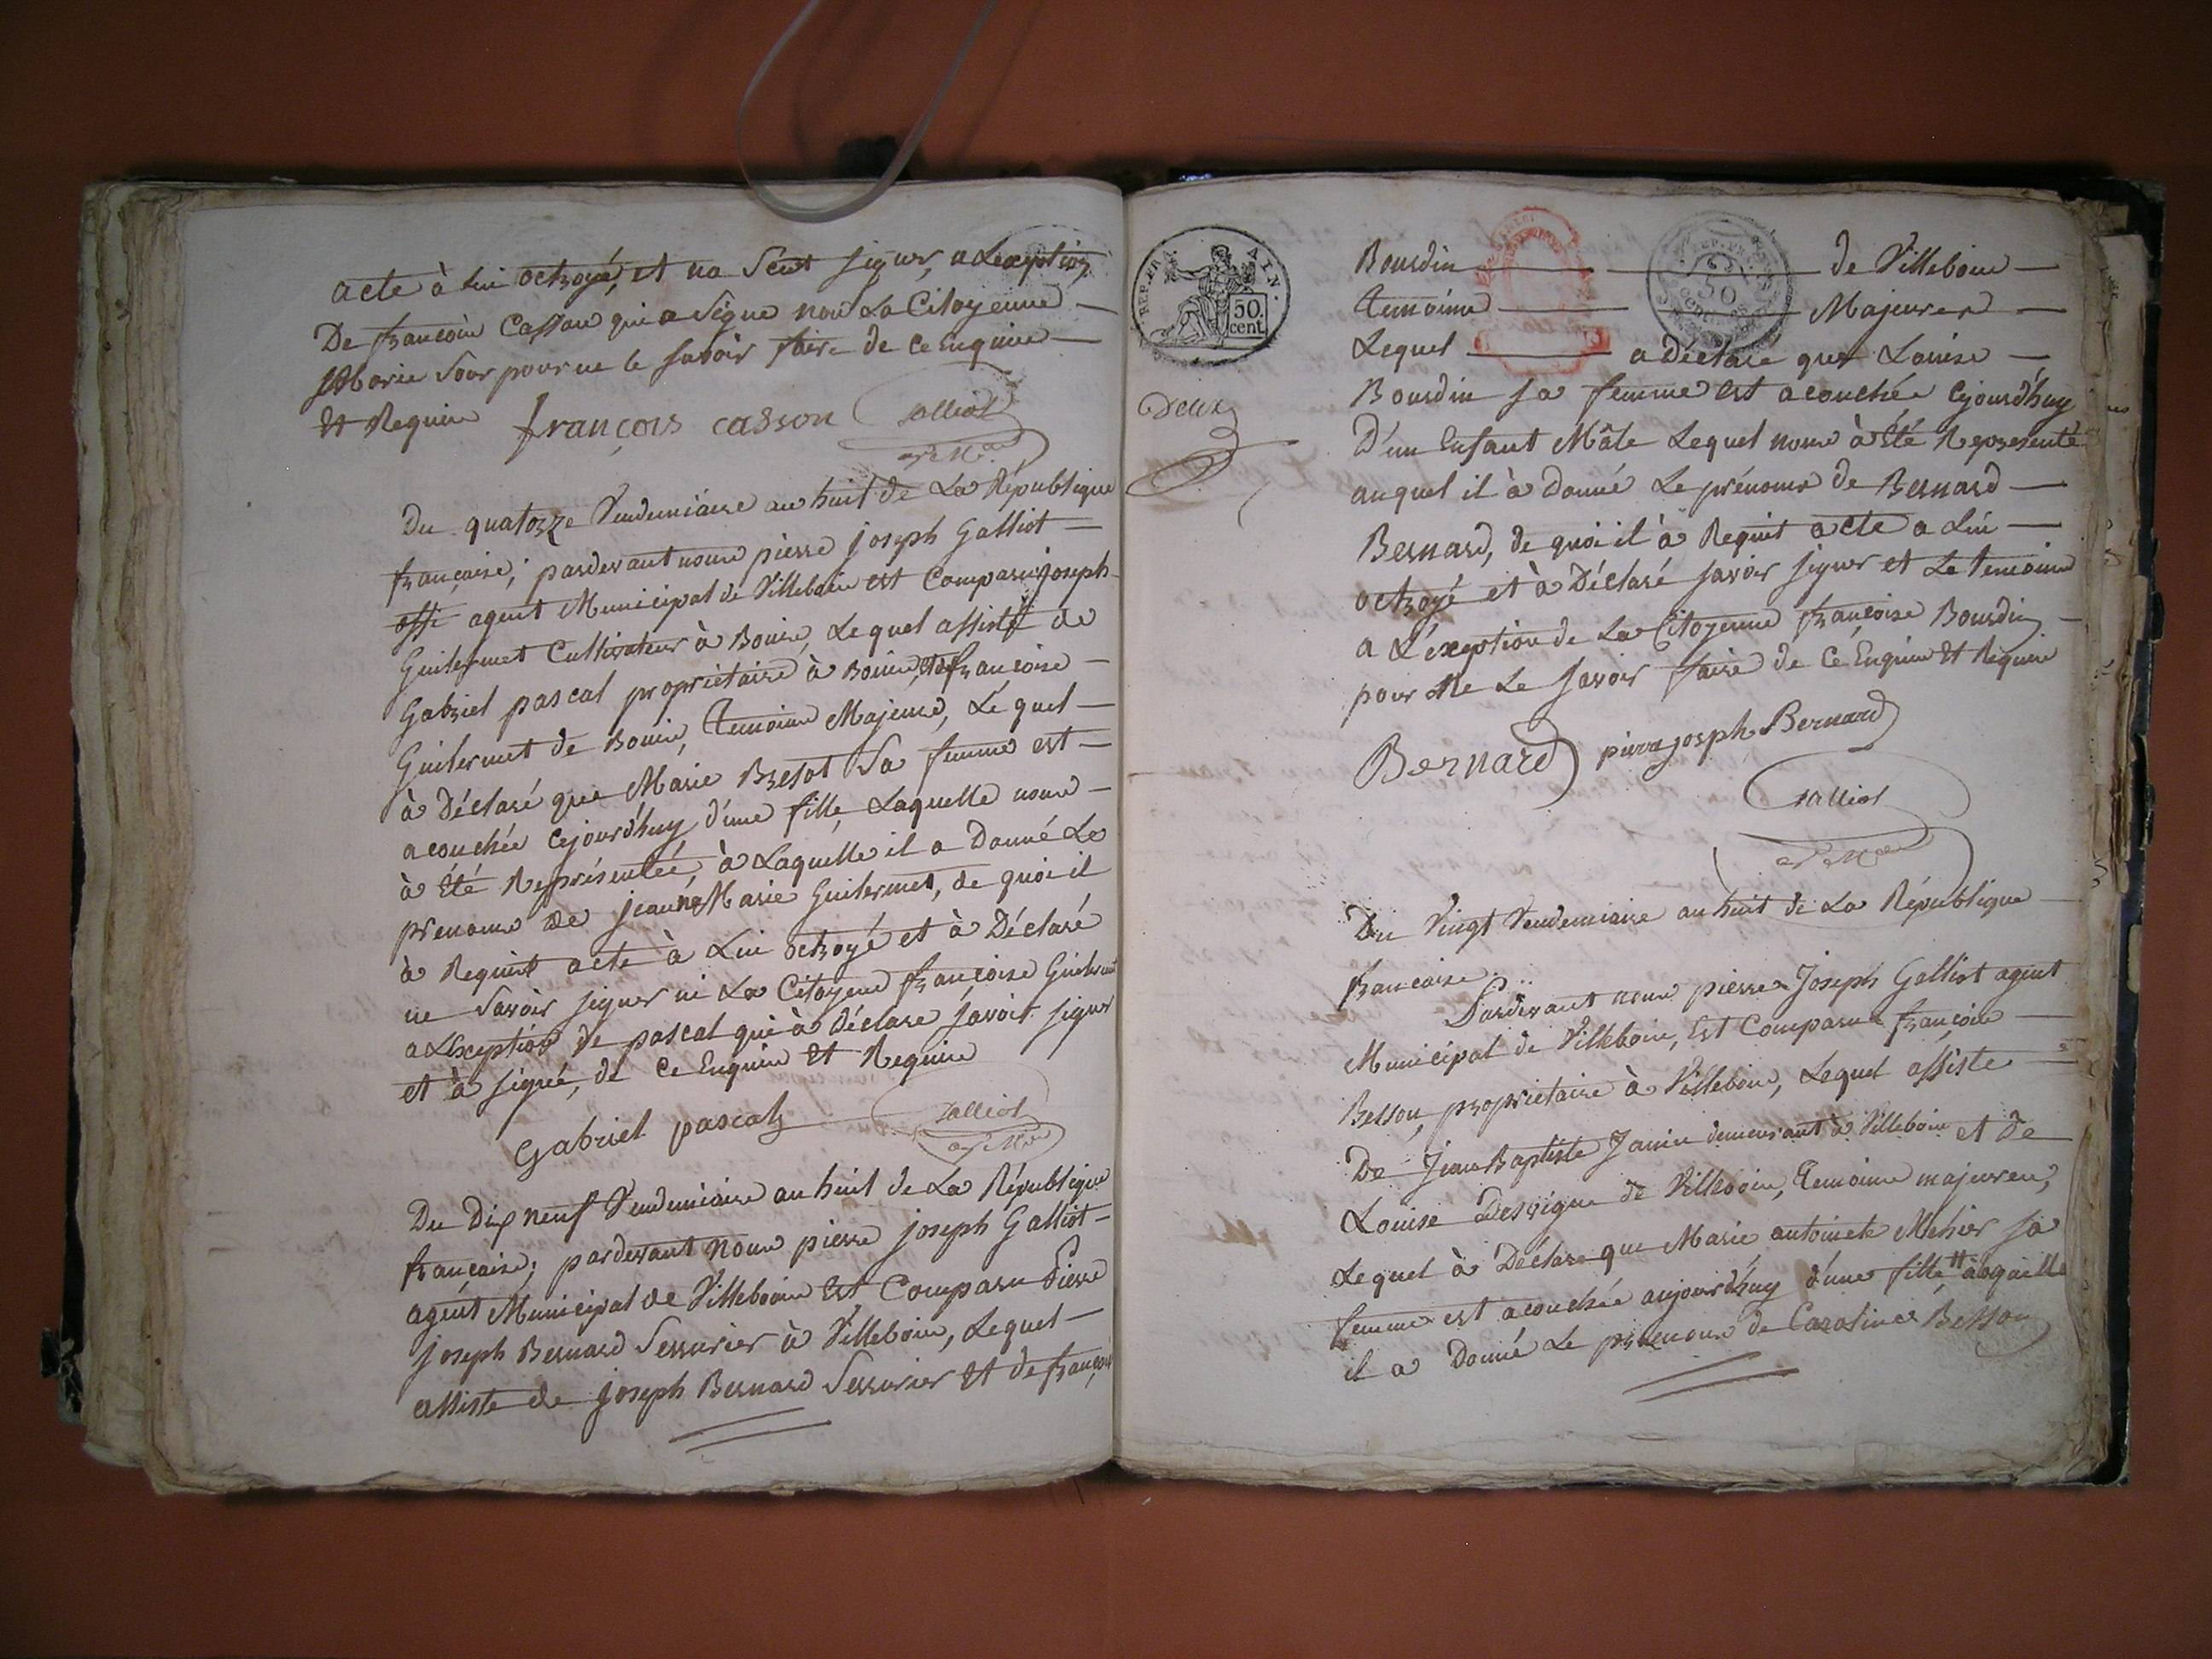 acte à lui octroyé, et na Scut signer, a Lexeption
De françoise Cassau qui a Signe non La Citoyenne
Marie Sour pour ne le savoir faire de ce Enquise
Et Requise françois casson Galliot
agt Mal
Du quatorze Vendemiaire an huit de La République
française; pardevant nous pierre joseph Galliot
offi agent Municipal de Villeboise est Comparu joseph
Guilermet Cultivateur à Bouise, Lequel assisté de
Gabriel pascal proprietaire à Bouise, et de françoise
Guilermet de Bouise, temoins Majeurs, Lequel
à Déclaré que Marie Bresot Sa femme est
acouchée cejourd'huy d'une fille, Laquelle nous
à Été Représentée, à Laquelle il a Donné Le
prenoms de jeanne Marie Guilermet, de quoi il
à Requist acte à Lui octroyé et à Déclaré
ne Savoir signer ni La Citoyene françoise Guilermet
a Lexception de pascal qui à déclaré savoir signer
et à signé, de Ce Enquise Et Requise
Gabriel pascal Galliot
agt Mal
Du Dix neuf Vendemiaire an huit de La République
française; pardevant Nous pierre joseph Galliot
agent Municipal de Villeboise Est Comparu Pierre
joseph Bernard Serrurier à Villeboise, Lequel
assisté de joseph Bernard Serrurier Et de françoise
REP. FRA. AIN.
50. cent.
Deux
Bourdin de Villeboise
temoins Majeurs
Lequel a déclaré que Louise
Bourdin sa femme est acouchée cejourd'huy
D'un Enfant Mâle Lequel nous à Été Représenté
auquel il à donné Le prénoms de Bernard
Bernard, de quoi il à Requit acte a Lui
octroyé et à Déclaré savoir signer et Le temoins
a L'exeption de La Citoyenne françoise Bourdin
pour Ne Le savoir faire de Ce Enquise Et Requise
Bernard pierre joseph Bernard
Galliot
agt Mal
Du Vingt Vendemiaire an huit de La République
française.
Pardevant nous pierre Joseph Galliot agent
Municipal de Villeboise, Est Comparu françois
Besson, proprietaire à Villeboise, Lequel assisté
De Jean Baptiste Janin demeurant à Villeboise et de
Louise Desvigne de Villeboise, temoins majeures,
Lequel à Déclaré que Marie antoinete Mehier sa
femme est acouchée aujourd'huy d'une fille # a laquelle
il a Donné Le prenoms de Caroline Besson